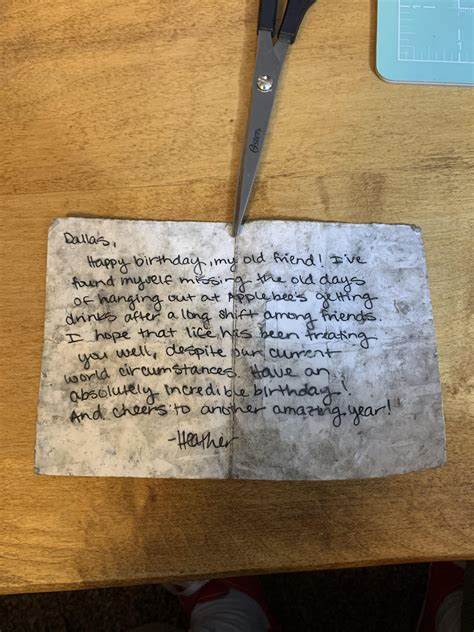 Dallas,
Happy birthday, my old friend! I've
found myself missing the old days
of hanging out at Applebee's getting
drinks after a long shift among friends.
I hope that life has been treating
you well, despite our current
world circumstances. Have an
absolutely incredible birthday!
And cheers to another amazing year!
-Heather